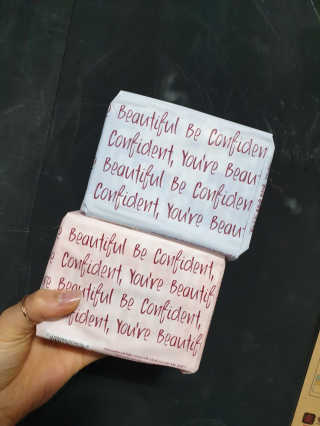 Beautiful Be Confiden
Confident, You're Beaut
Beautiful Be Confiden
Confident, You're Beaut
Beautiful Be Confident,
e Confident, You're Beautif
Beautiful Be Confident,
fident, You're Beautif